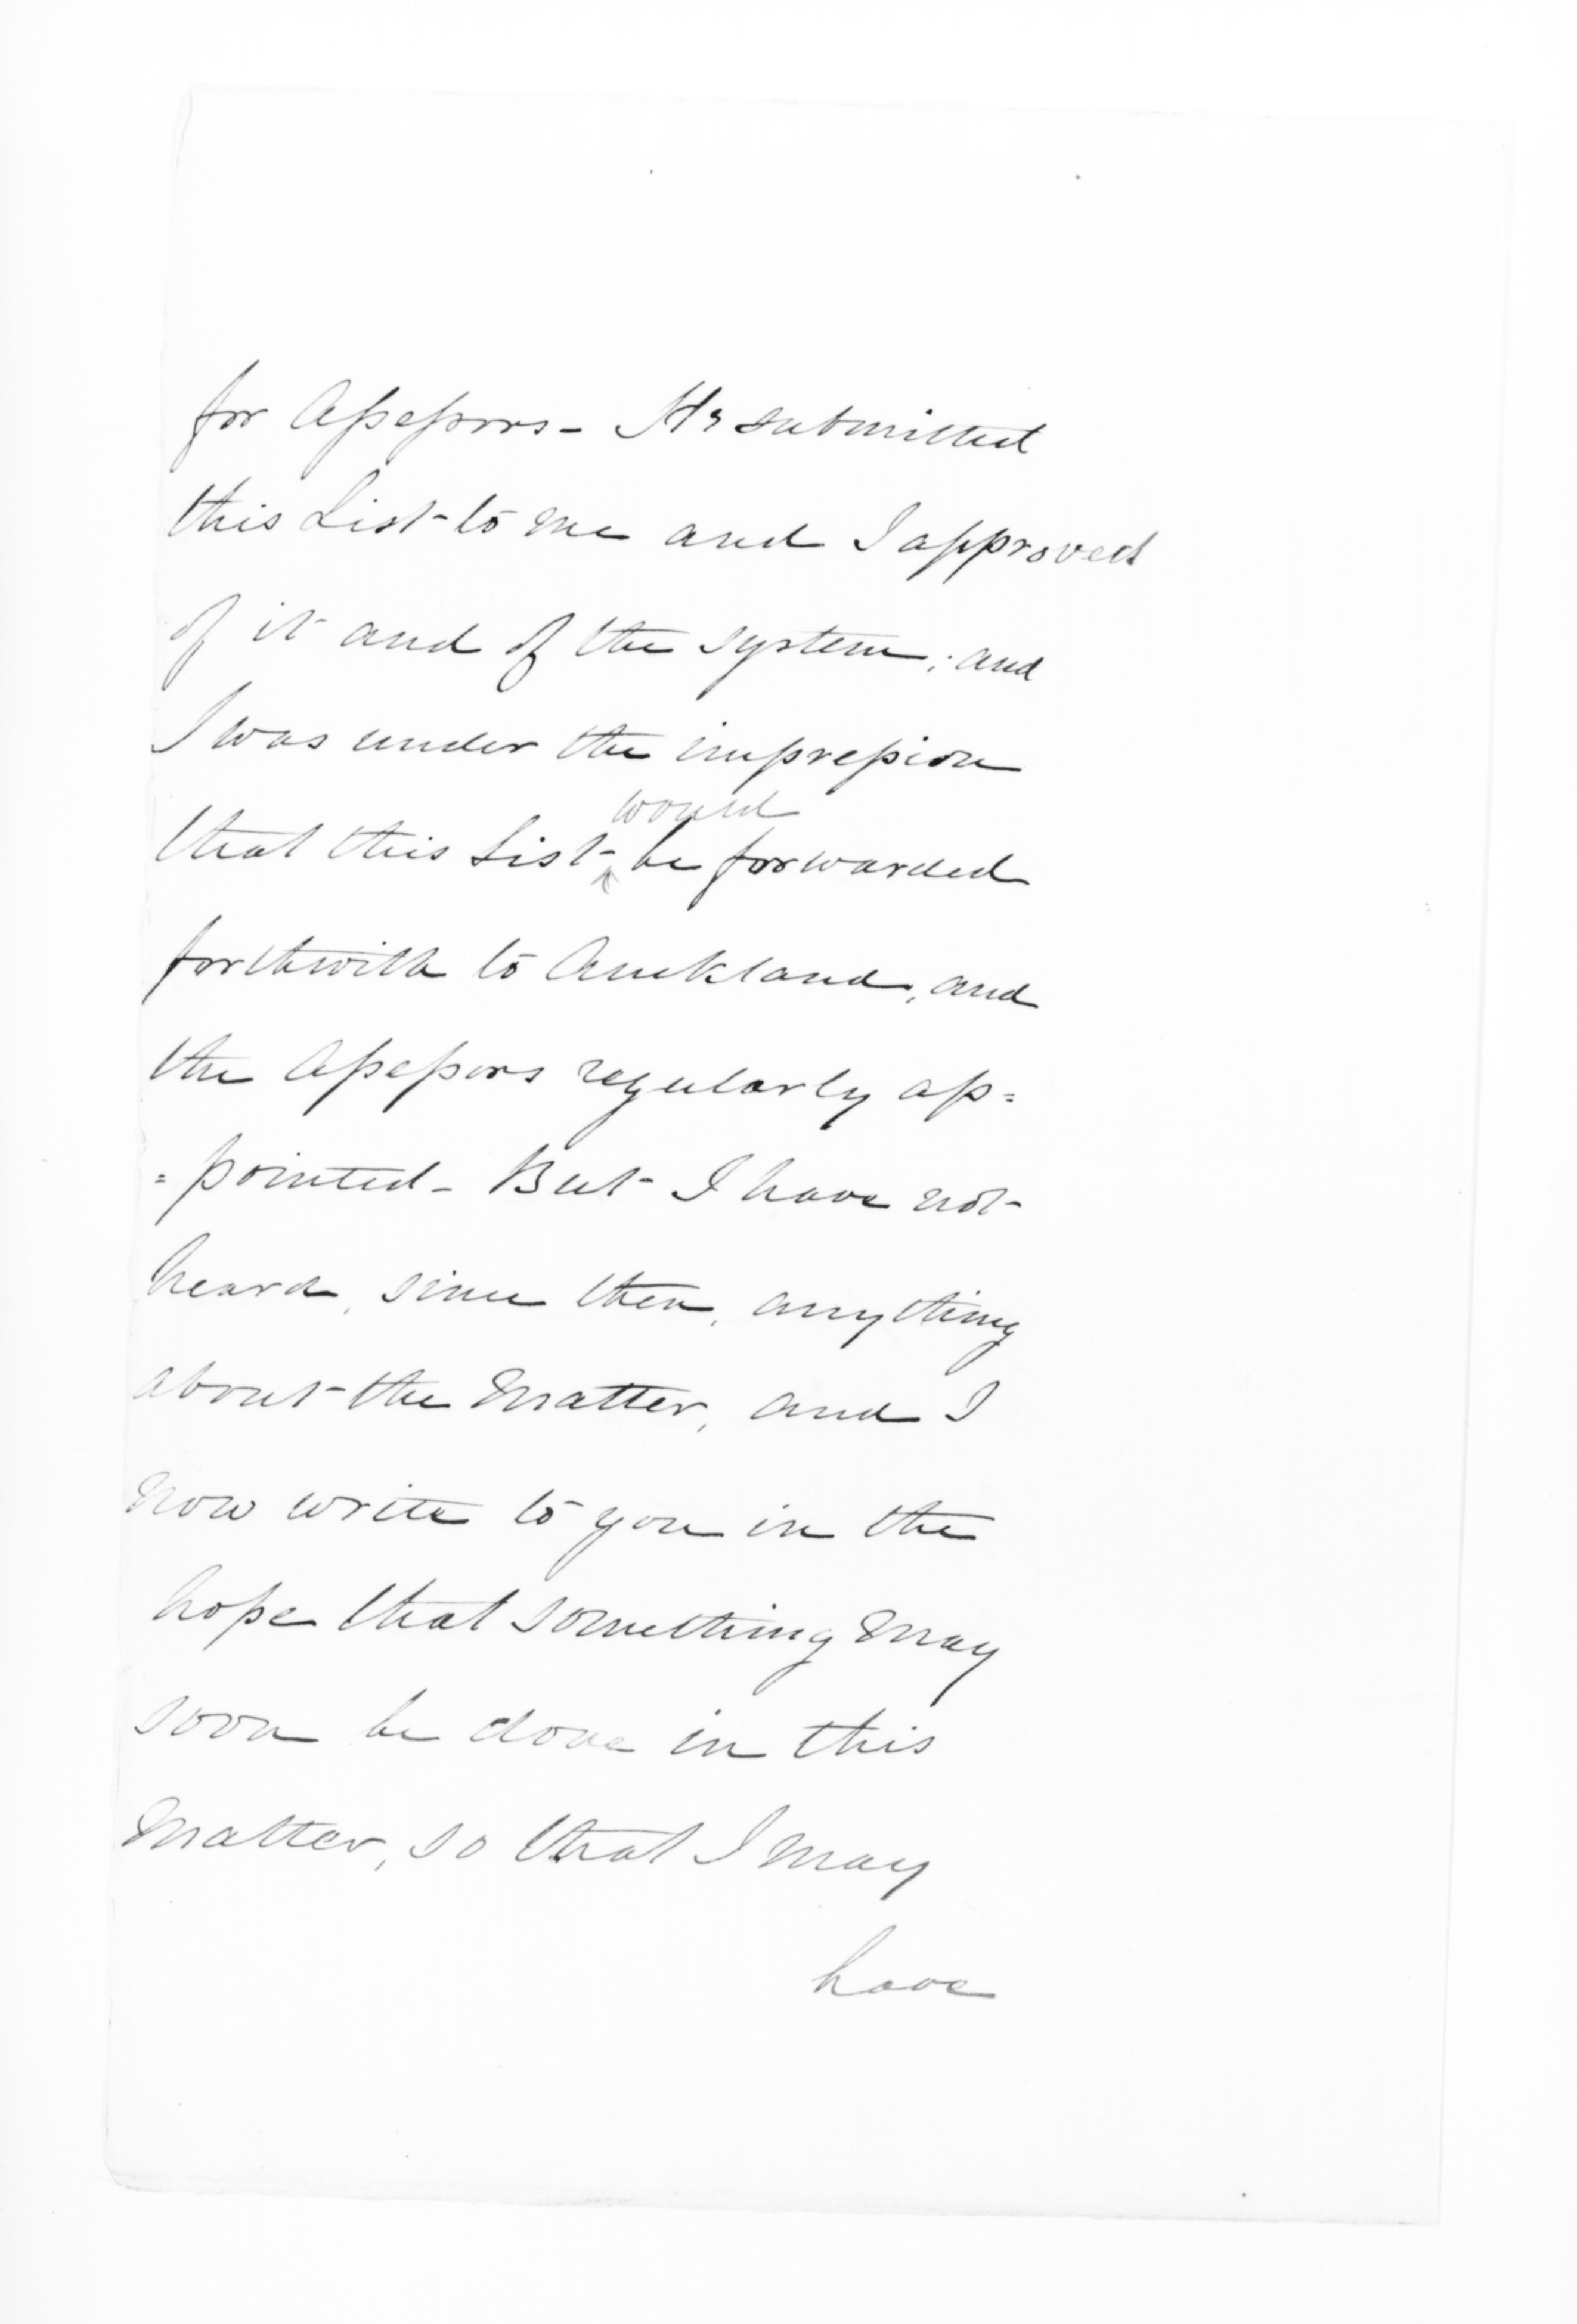 for Assessors - He submitted
this List to me and I approved
of it and of the system; and
I was under the impression
would
that this List ^ be forwarded
forthwith to Auckland, and
the Assessors regularly ap=
=pointed - But I have not
heard, since then, anything
about the Matter, and I
now write to you in the
hope that something may
soon be done in this
Matter, so that I may
have